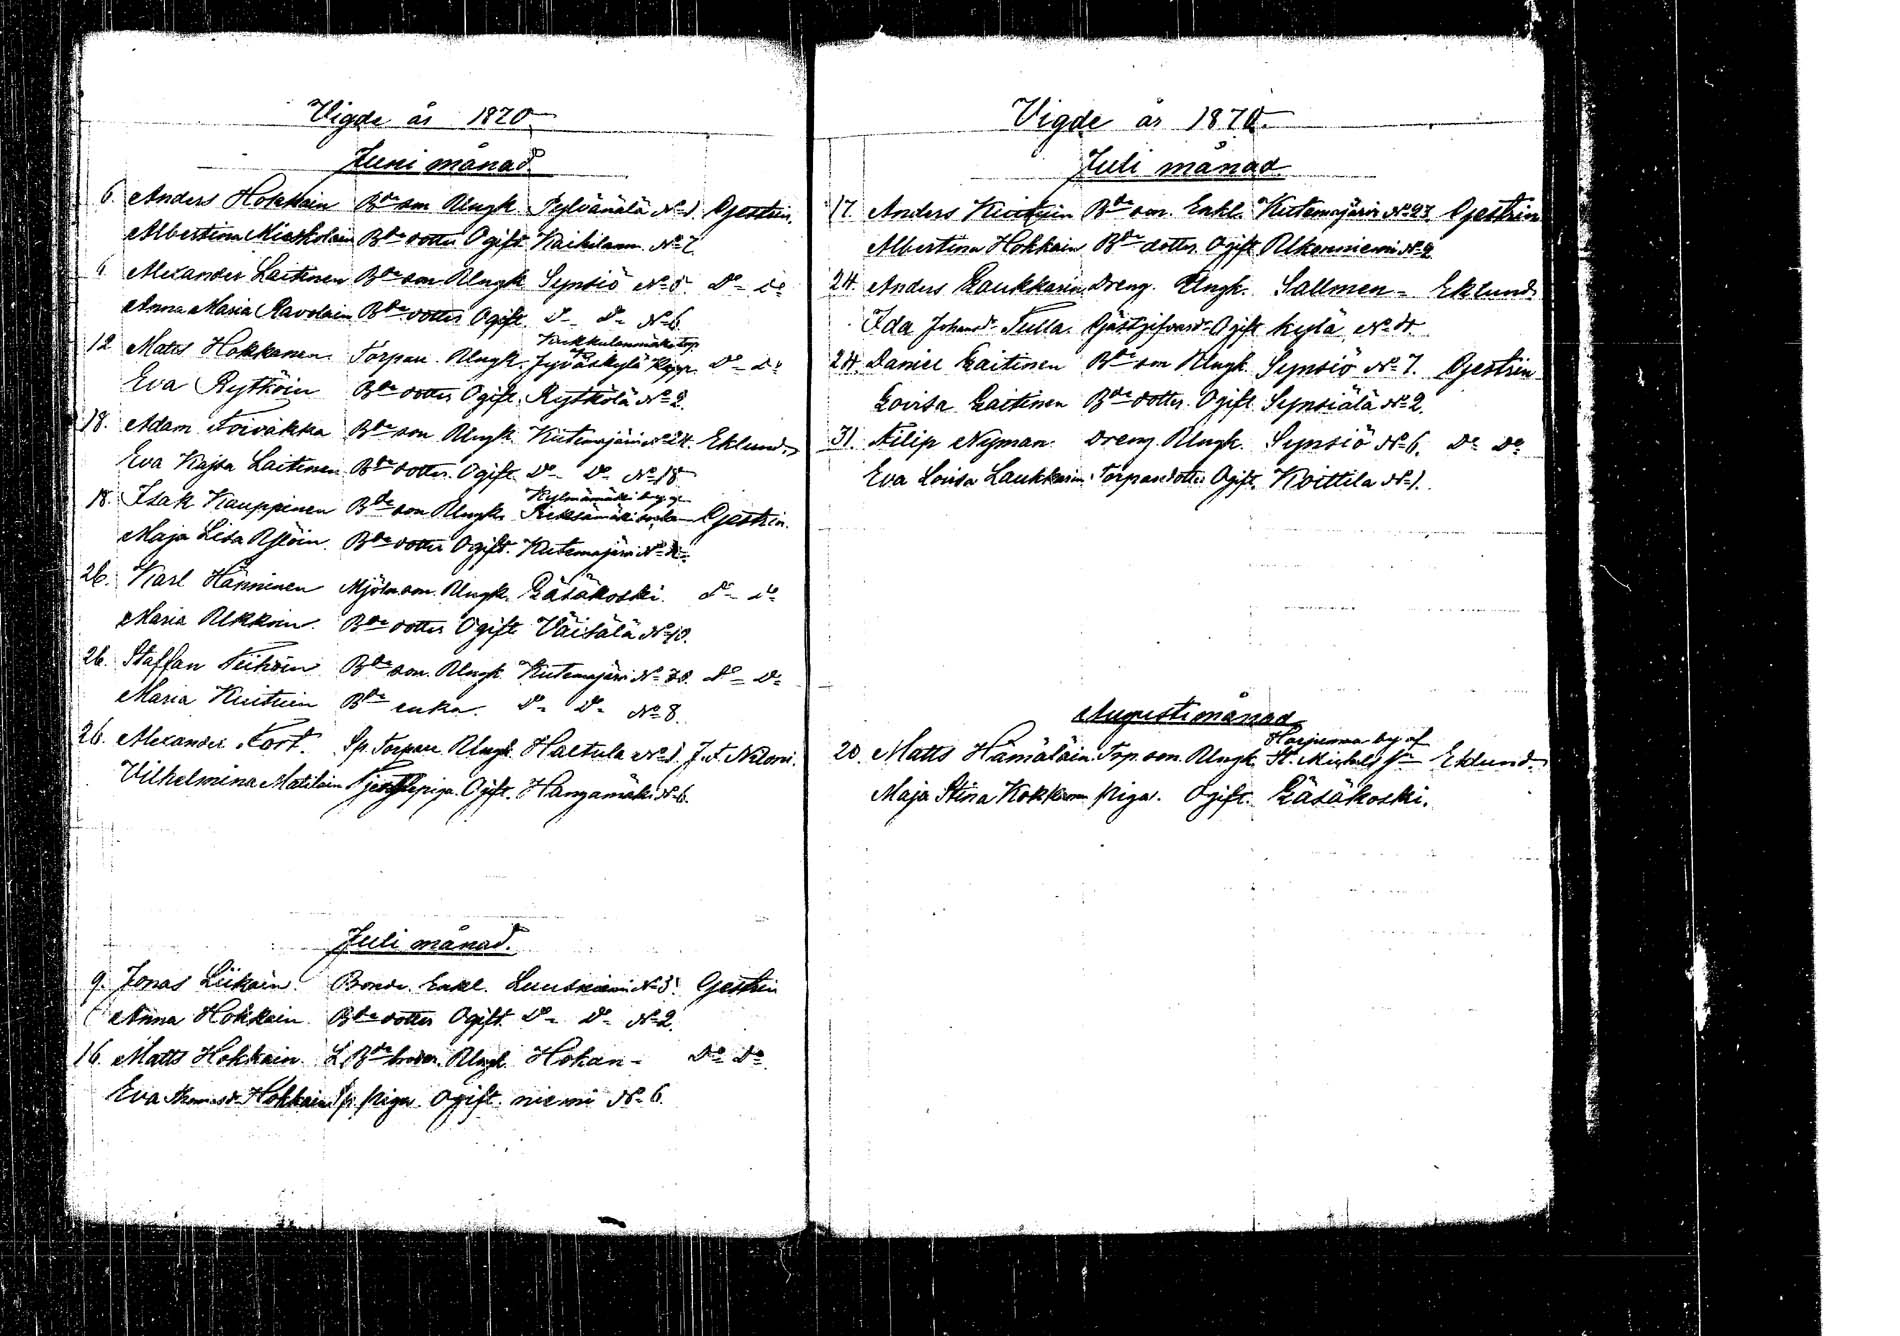 Vigde år 1870
Juni månad.
6. Anders Hokkain Bde son Ungk. Pylvänälä No 1 Gestrin.
Albertina Minkkolain Bde dotter Ogift Kaihilam. No 7.
6 Alexander Laitinen Bde son Ungk Synsiö No 5. Do Do
Anna Maria Ravolain Bde dotter Ogift. Do Do No 6
12 Matts Hokkanen Torpare. Ungk. Jyväskylä Kapp. Do Do
Eva Rytköin Bde dotter Ogift. Rytkölä No 2.
18. Adam Toivakka Bde son Ungk Kutemajärvi No 24. Eklund
Eva Kajsa Laitinen Bde dotter Ogift Do Do No 18
Kylmämäki by
18. Isak Kauppinen Bde son Ungk. Gestrin.
Maja Lisa Bde dotter Ogift. Kutemajärvi No
26. Karl Hänninen Mjöln. son. Ungk. Läsäkoski. Do Do
Maria Ukkoin. Bde dotter Ogift Väisälä No 10.
26. Staffan Bde son. Ungk. Kutemajärvi No Do Do
Maria Kuituin Bde enka. Do Do No 8.
26. Alexander Fort. Sp. Torpare Ungk. Haetula No 1. J. F.
Vilhelmina Matilain piga. Ogift. Hangamäki No 6.
Juli månad.
9. Jonas Liikain. Bonde. Enkl. Luusniemi No 3. Gestrin
Anna Hokkain. Bde dotter Ogift. Do Do No 2.
16. Matts Hokkain L. Bde broder. Ungk. Hokan- Do Do
Eva Hokkain Sp. piga. Ogift. niemi No 6.
Vigde år 1870.
Juli månad.
17. Anders Kuituin Bde son. Enkl. Kutemajärvi No 23. Gestrin
Albertina Hokkain Bde dotter. Ogift Ulkonniemi No 2
24. Anders Laukkarin Dreng. Ungk. Sallmen- Eklund
Ida Johansdr Tulla. Gästgifvaredr Ogift kylä No 4.
24. Daniel Laitinen Bde son Ungk Synsiö No 7. Gestrin
Lovisa Laitinen Bde dotter. Ogift Synsiälä No 2.
31. Filip Nyman. Dreng. Ungk. Synsiö No 6. Do Do
Eva Lovisa Laukkarin Torparedotter Ogift. Koittila No 1.
Augusti månad
Harjumaa by af
20. Matts Hämäläin. Torp. son. Ungk. St. Michels Sn Eklund.
Maja Stina Kokkonen Piga. Ogift. Läsäkoski.